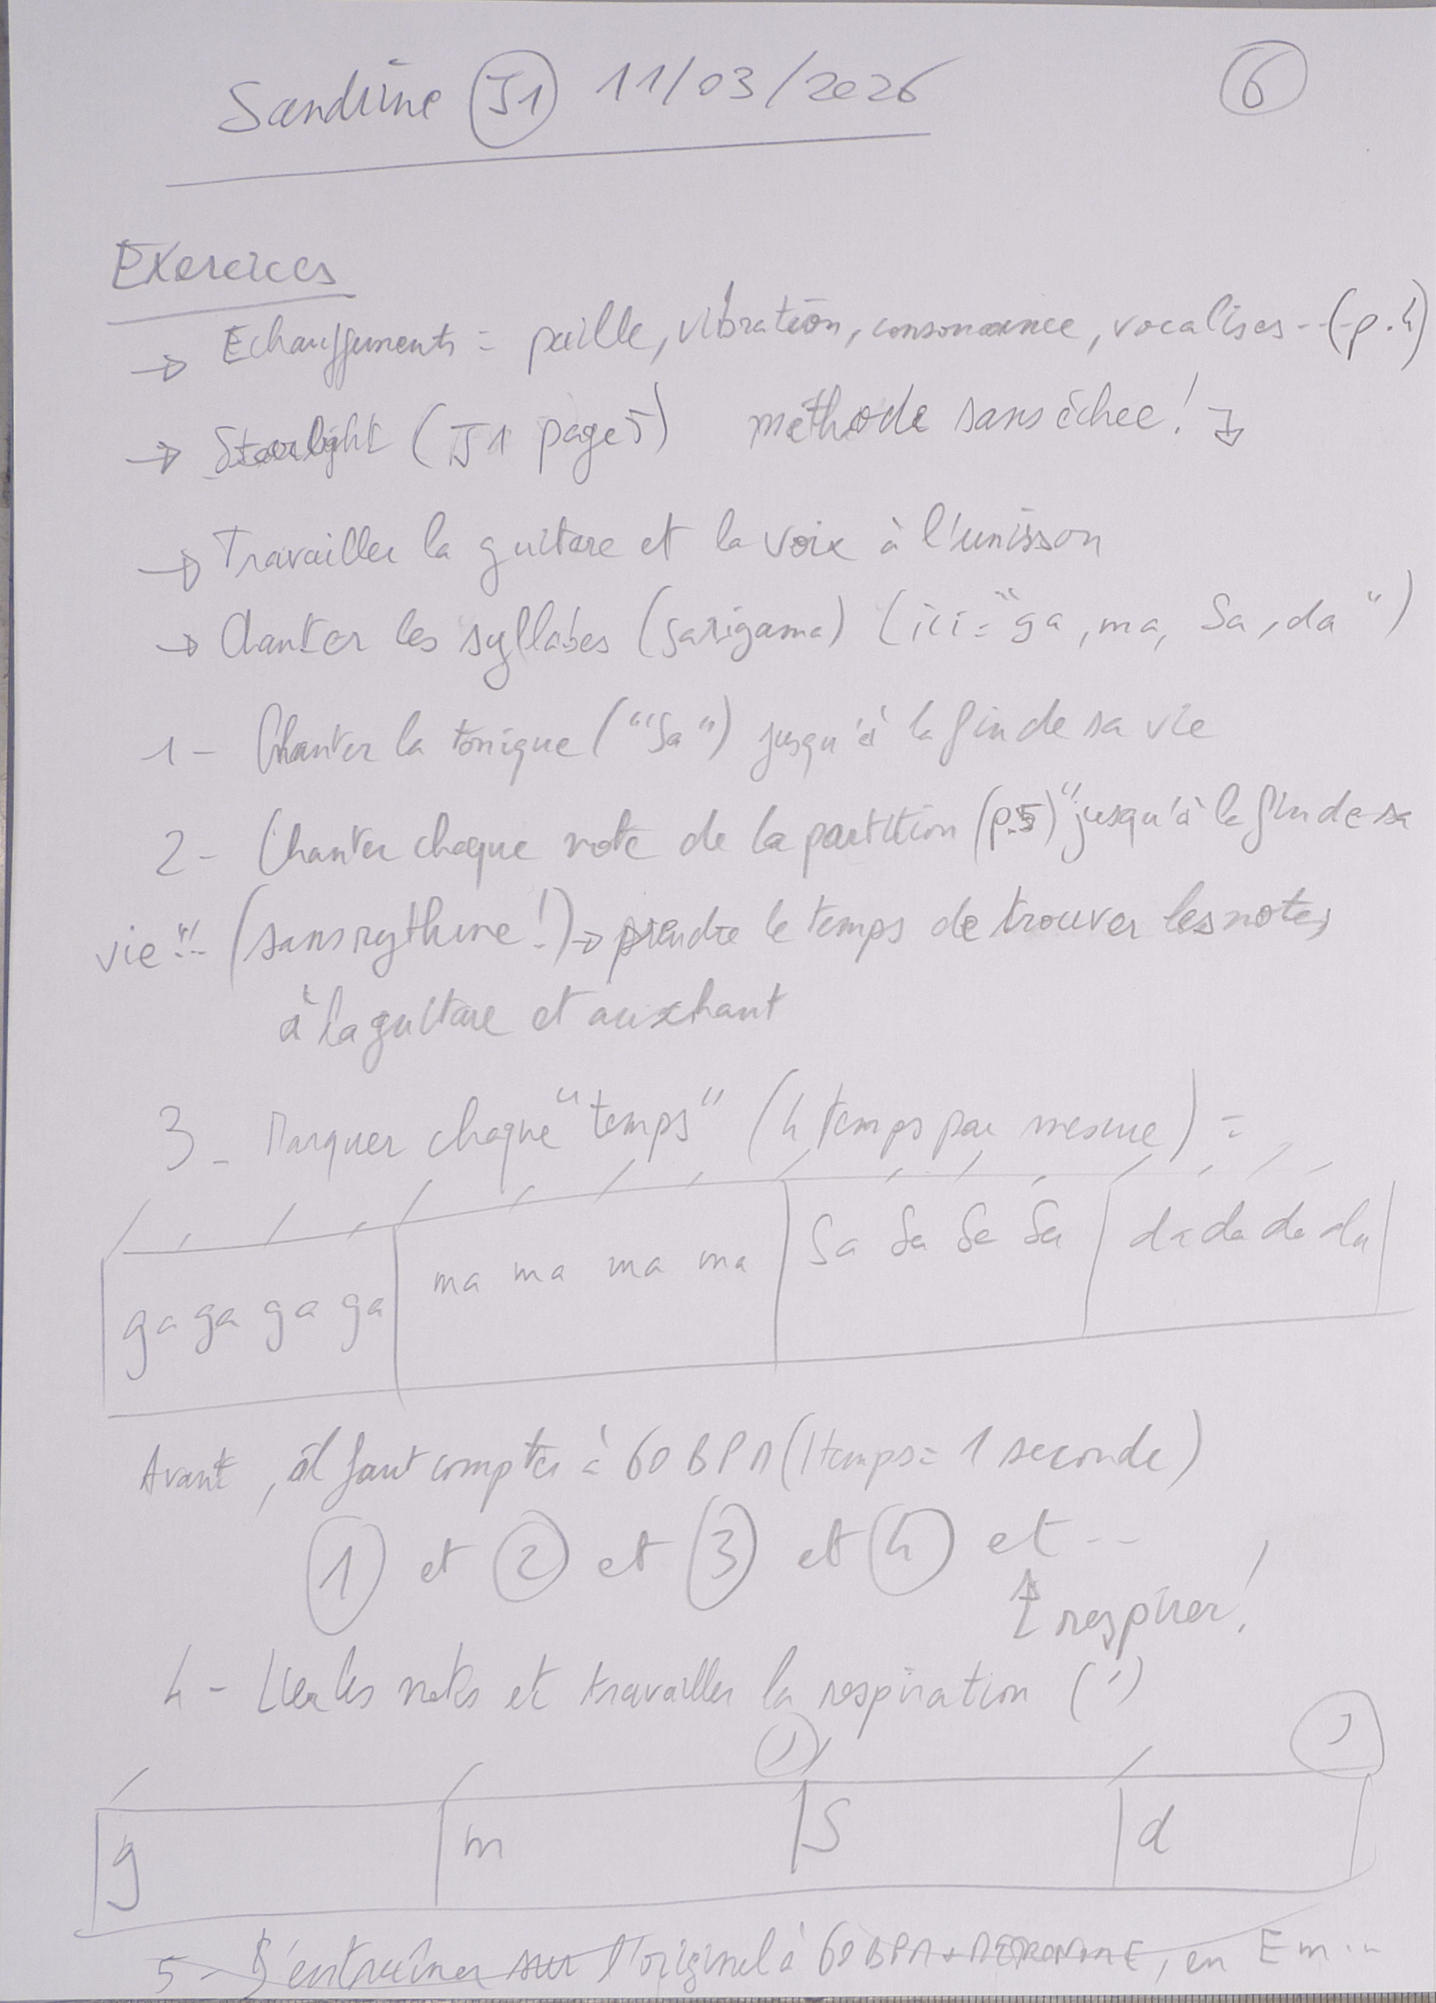 Sandrine J1 11/03/2026 6
Exercices
→ Echauffements = paille, vibration, consonance, vocalises -- (p.4)
→ Starlight (J1 page 5) méthode sans échec! ↴
→ Travailler la guitare et la voix à l'unisson
→ Chanter les syllabes (sarigama) (ici = "ga, ma, Sa, da")
1 - Chanter la tonique ("Sa") jusqu'à la fin de sa vie
2 - Chanter chaque note de la partition (p.5) "jusqu'à la fin de sa
vie"!.. (sans rythme!) → prendre le temps de trouver les notes
à la guitare et au chant
3 - Marquer chaque "temps" (4 temps par mesure) =
ga ga ga ga | ma ma ma ma | Sa Sa Sa Sa | da da da da |
Avant, il faut compter à 60 BPM (1 temps = 1 seconde)
1 et 2 et 3 et 4 et --
↑ respirer!
4 - Lier les notes et travailler la respiration (')
g | m | S | d
5 - S'entraîner sur l'original à 60 BPM + METRONOME, en Em...